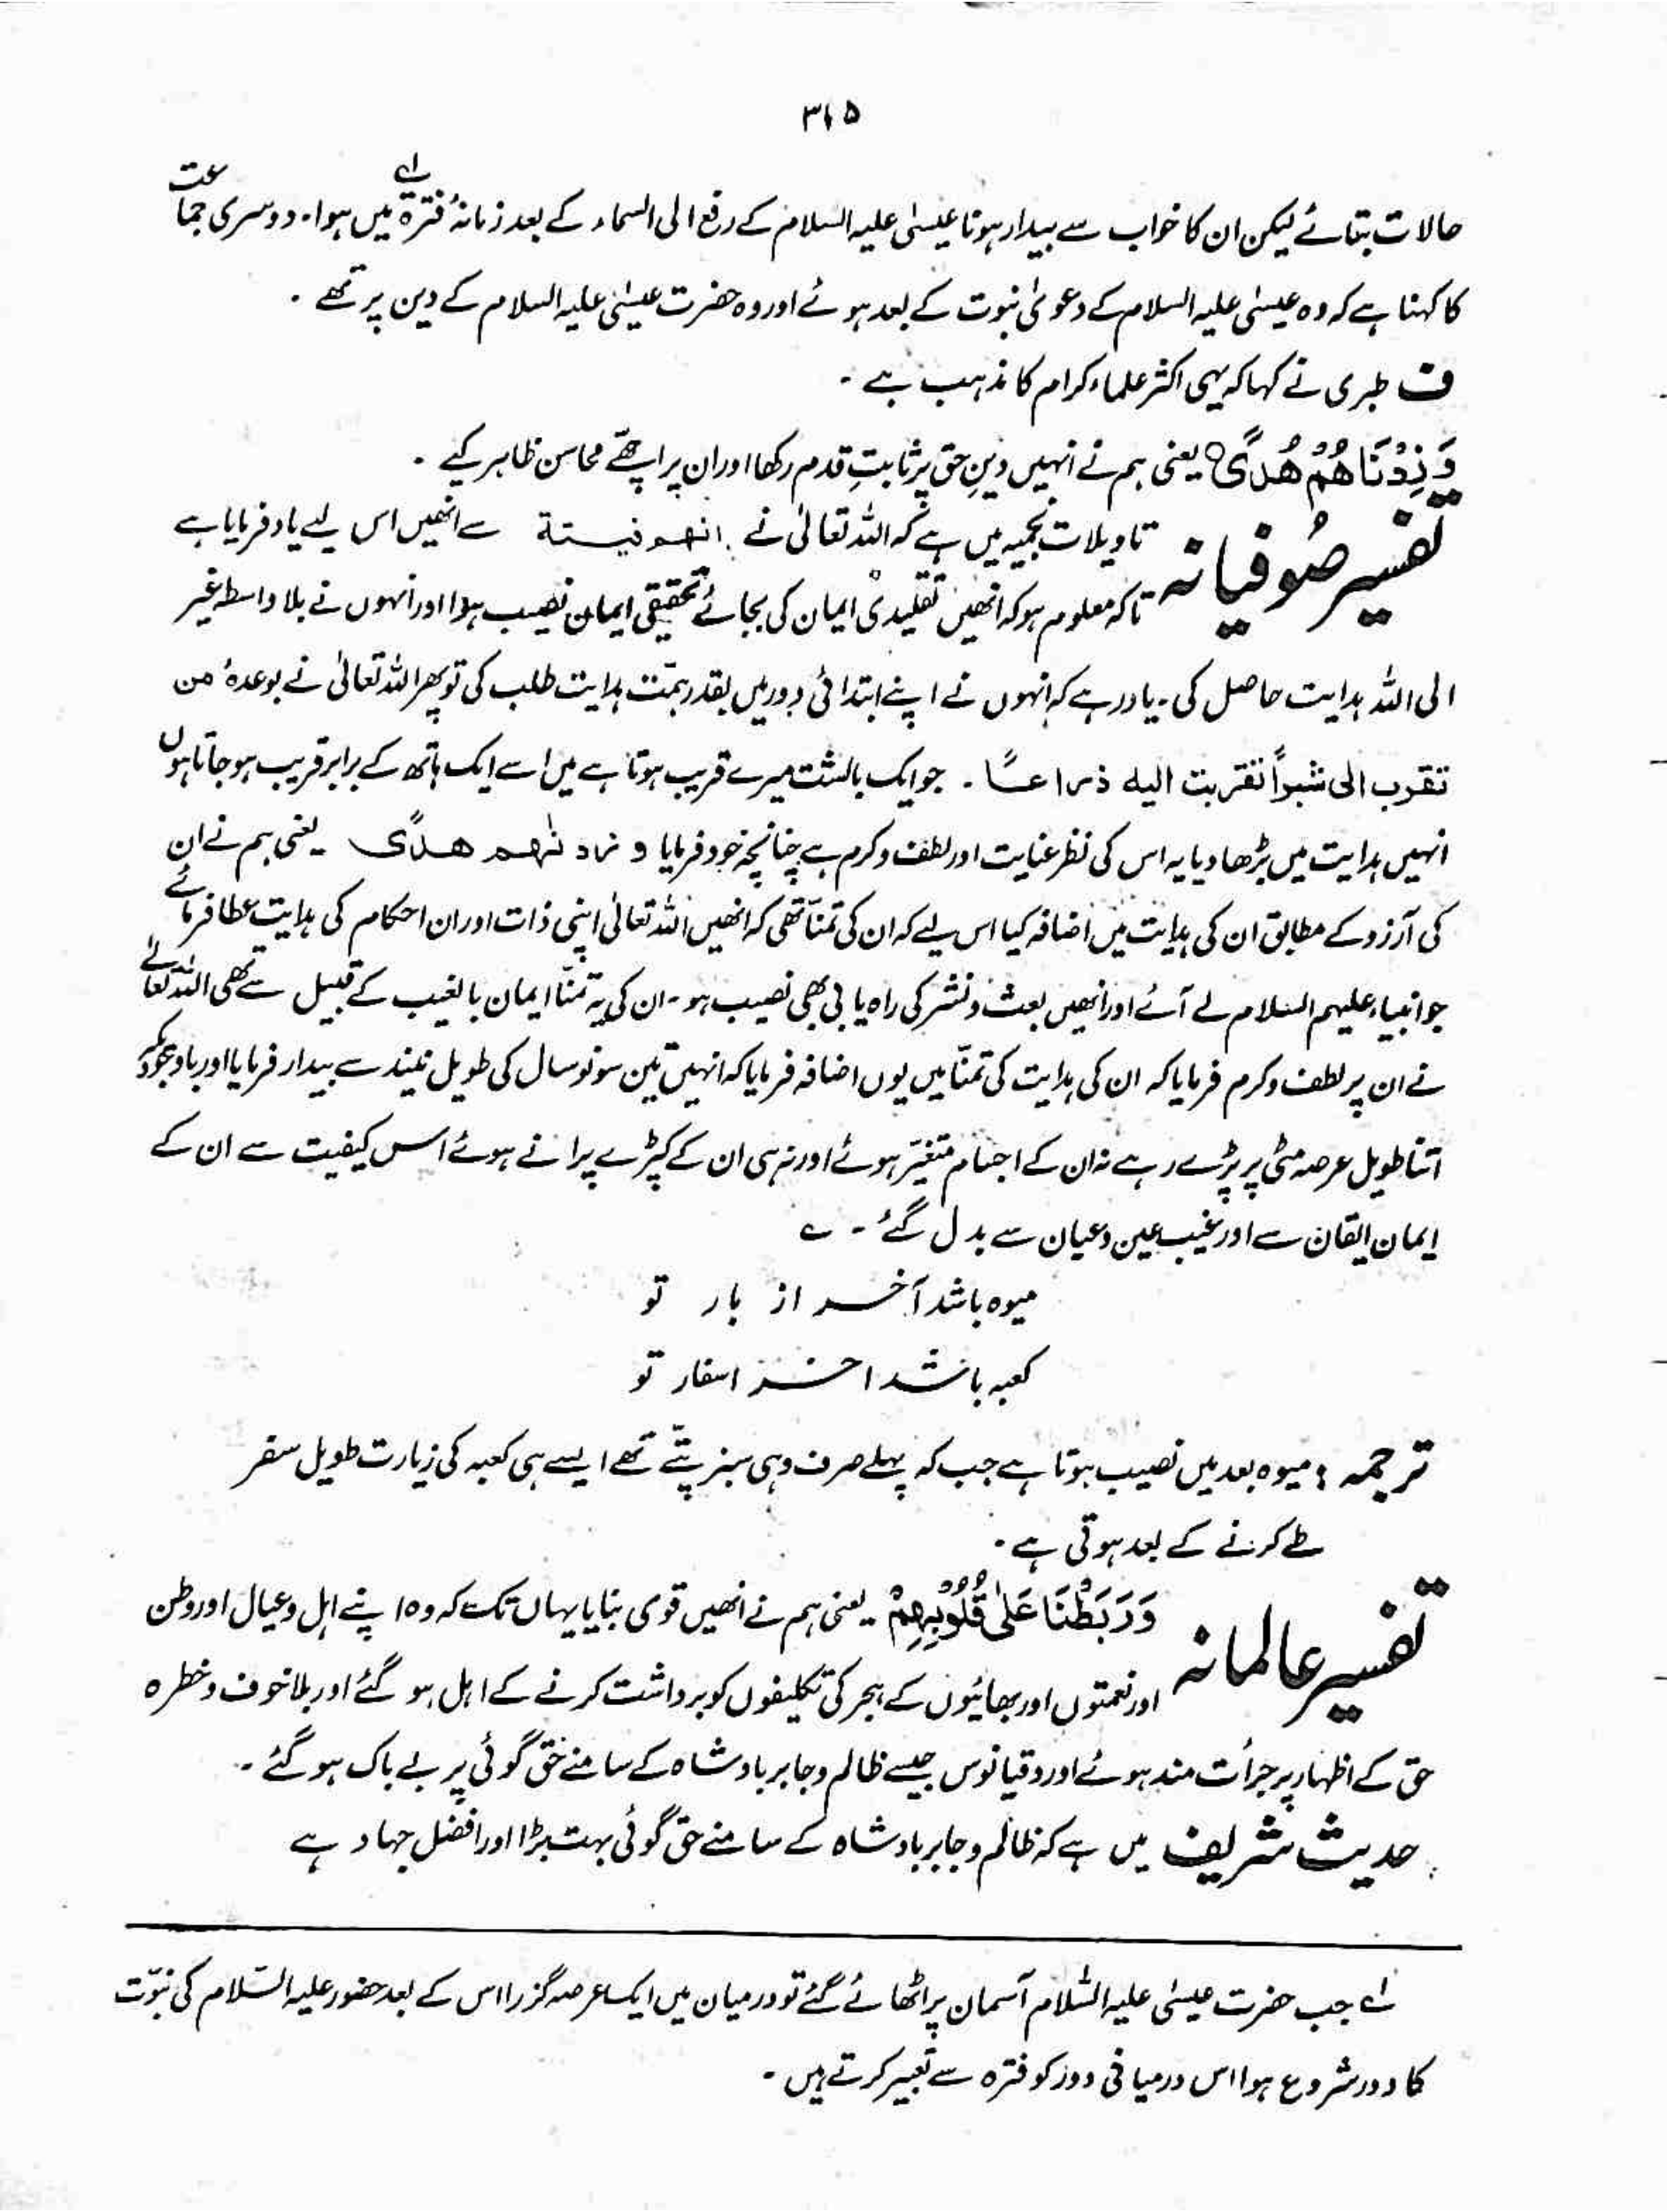 ۳۱۵
حالات بتائے لیکن ان کا خواب سے بیدار ہونا عیسیٰ علیہ السلام کے رفع الی السماء کے بعد زمانۂ فترۃ لے میں ہوا۔ دوسری جماعت
کا کہنا ہے کہ وہ عیسیٰ علیہ السلام کے دعویٰ نبوت کے بعد ہوئے اور وہ حضرت عیسیٰ علیہ السلام کے دین پر تھے ۔
ف طبری نے کہا کہ یہی اکثر علماء کرام کا مذہب ہے ۔
وَزِدْنَاهُمْ هُدًى یعنی ہم نے انہیں دینِ حق پر ثابت قدم رکھا اور ان پر اچھے محاسن ظاہر کیے ۔
تفسیر صُوفیانہ تاویلات نجمیہ میں ہے کہ اللہ تعالیٰ نے انهم فتیة سے انھیں اس لیے یاد فرمایا ہے
تاکہ معلوم ہو کہ انھیں تقلیدی ایمان کی بجائے تحقیقی ایمان نصیب ہوا اور انہوں نے بلا واسطہ غیر
الی اللہ ہدایت حاصل کی۔ یاد رہے کہ انہوں نے اپنے ابتدائی دور میں بقدر ہمّت ہدایت طلب کی تو پھر اللہ تعالیٰ نے بوعدۂ من
تقرب الی شبراً تقربت الیه ذراعًا ۔ جو ایک بالشت میرے قریب ہوتا ہے میں اسے ایک ہاتھ کے برابر قریب ہو جاتا ہوں
انہیں ہدایت میں بڑھا دیا یہ اس کی نظر عنایت اور لطف و کرم ہے چنانچہ خود فرمایا و زدنٰهم هدًى یعنی ہم نے ان
کی آرزو کے مطابق ان کی ہدایت میں اضافہ کیا اس لیے کہ ان کی تمنّا تھی کہ انھیں اللہ تعالیٰ اپنی ذات اور ان احکام کی ہدایت عطا فرمائے
جو انبیاء علیہم السلام لے آئے اور انھیں بعث و نشر کی راہ یابی بھی نصیب ہو۔ ان کی یہ تمنّا ایمان بالغیب کے قبیل سے تھی اللہ تعالےٰ
نے ان پر لطف و کرم فرمایا کہ ان کی ہدایت کی تمنّا میں یوں اضافہ فرمایا کہ انہیں تین سو نو سال کی طویل نیند سے بیدار فرمایا اور باوجودیکہ
اتنا طویل عرصہ مٹی پر پڑے رہے نہ ان کے اجسام متغیّر ہوئے اور نہ ہی ان کے کپڑے پرانے ہوئے اس کیفیت سے ان کے
ایمان ایقان سے اور غیب عین و عیان سے بدل گئے ۔ ے
میوہ باشد آخر از بار تو
کعبہ باشد اخر اسفار تو
ترجمہ : میوہ بعد میں نصیب ہوتا ہے جب کہ پہلے صرف وہی سبز پتّے تھے ایسے ہی کعبہ کی زیارت طویل سفر
طے کرنے کے بعد ہوتی ہے ۔
تفسیر عالمانہ وَرَبَطْنَا عَلٰى قُلُوْبِهِمْ یعنی ہم نے انھیں قوی بنایا یہاں تک کہ وہ اپنے اہل و عیال اور وطن
اور نعمتوں اور بھائیوں کے ہجر کی تکلیفوں کو برداشت کرنے کے اہل ہو گئے اور بلا خوف و خطرہ
حق کے اظہار پر جرأت مند ہوئے اور دقیانوس جیسے ظالم و جابر بادشاہ کے سامنے حق گوئی پر بے باک ہو گئے ۔
حدیث شریف میں ہے کہ ظالم و جابر بادشاہ کے سامنے حق گوئی بہت بڑا اور افضل جہاد ہے
لے جب حضرت عیسٰی علیہ السّلام آسمان پر اٹھائے گئے تو درمیان میں ایک عرصہ گزرا اس کے بعد حضور علیہ السّلام کی نبوّت
کا دور شروع ہوا اس درمیانی دور کو فترہ سے تعبیر کرتے ہیں ۔